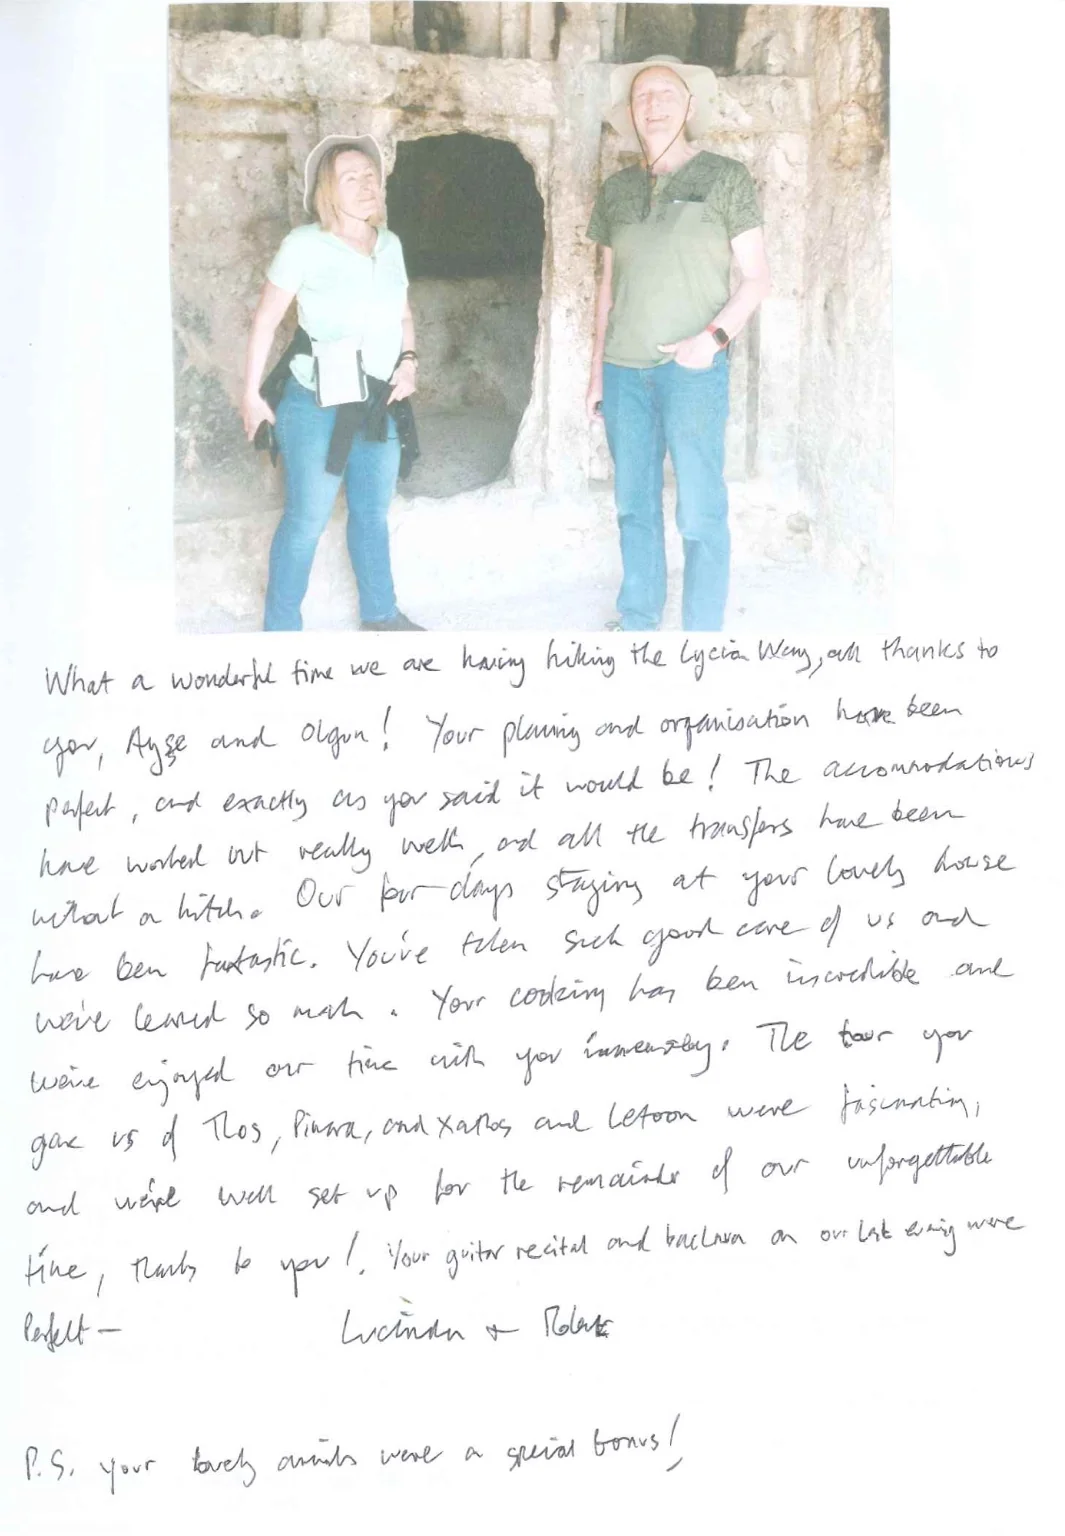 What a wonderful time we are having hiking the Lycia Way, all thanks to
you, Ayşe and Olgun! Your planing and organisation have been
perfect, and exactly as you said it would be! The accommodations
have worked out really well, and all the transfers have been
without a hitch. Our four days staying at your lovely house
have been fantastic. You've taken such good care of us and
we've learned so much. Your cooking has been incredible and
we've enjoyed our time with you immensely. The tour you
gave us of Tlos, Pinara, and Xathos and Letoon were fascinating,
and we're well set up for the remainder of our unforgettable
time, thanks to you! Your guitar recital and baclava on our last evening were
Perfect —
Lucinda +
P.S. your lovely animals were a special bonus!